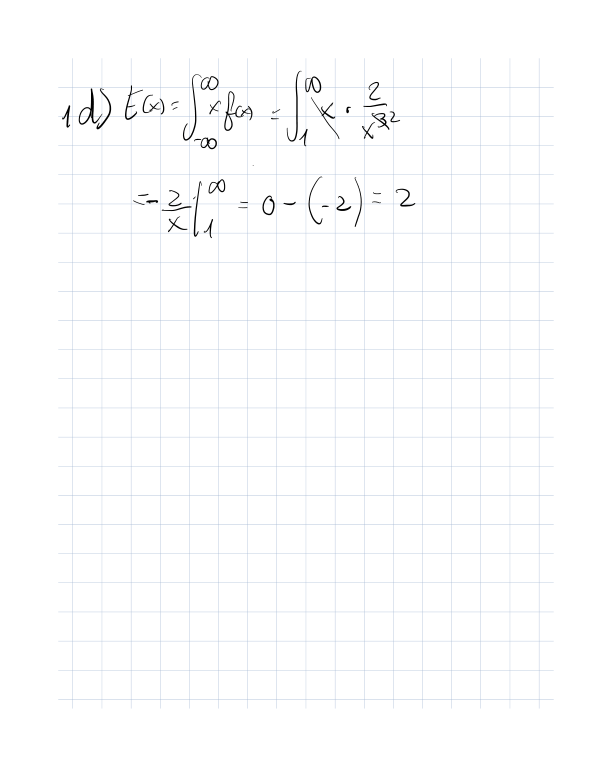 1d) E(x) = ∫_{-∞}^{∞} x f(x) = ∫_1^∞ x · 2/x^2
= -2/x |_1^∞ = 0 - (-2) = 2